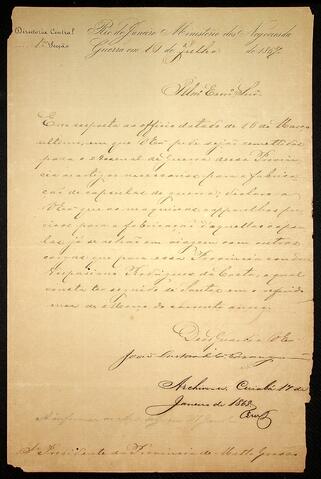 Directoria Central
1ª Secção
Rio de Janeiro Ministerio dos Negocios da
Guerra em 19 de Julho de 1867
Illmo Exmo Snr
Em resposta ao officio datado de 16 de Março
ultimo, em que VEx pede sejão remettidos
para o Arsenal de Guerra dessa Provin
cia os artigos necessarios para a fabrica
ção de capsulas de guerra; declaro a
VEx que as machinas, apparelhos pre
cisos para a fabricação daquellas capsu
las já se achão em viagem com outros
cargas que para essa Provincia conduz
Rodrigues da Costa, o qual
consta ter seguido de Santos em o referido
mez de Março do corrente anno.
Deus Guarde a VEx
João
Archive-se. Cuiabá 17 de
Janeiro de 1868.
Sr Presidente da Provincia de Matto Grosso